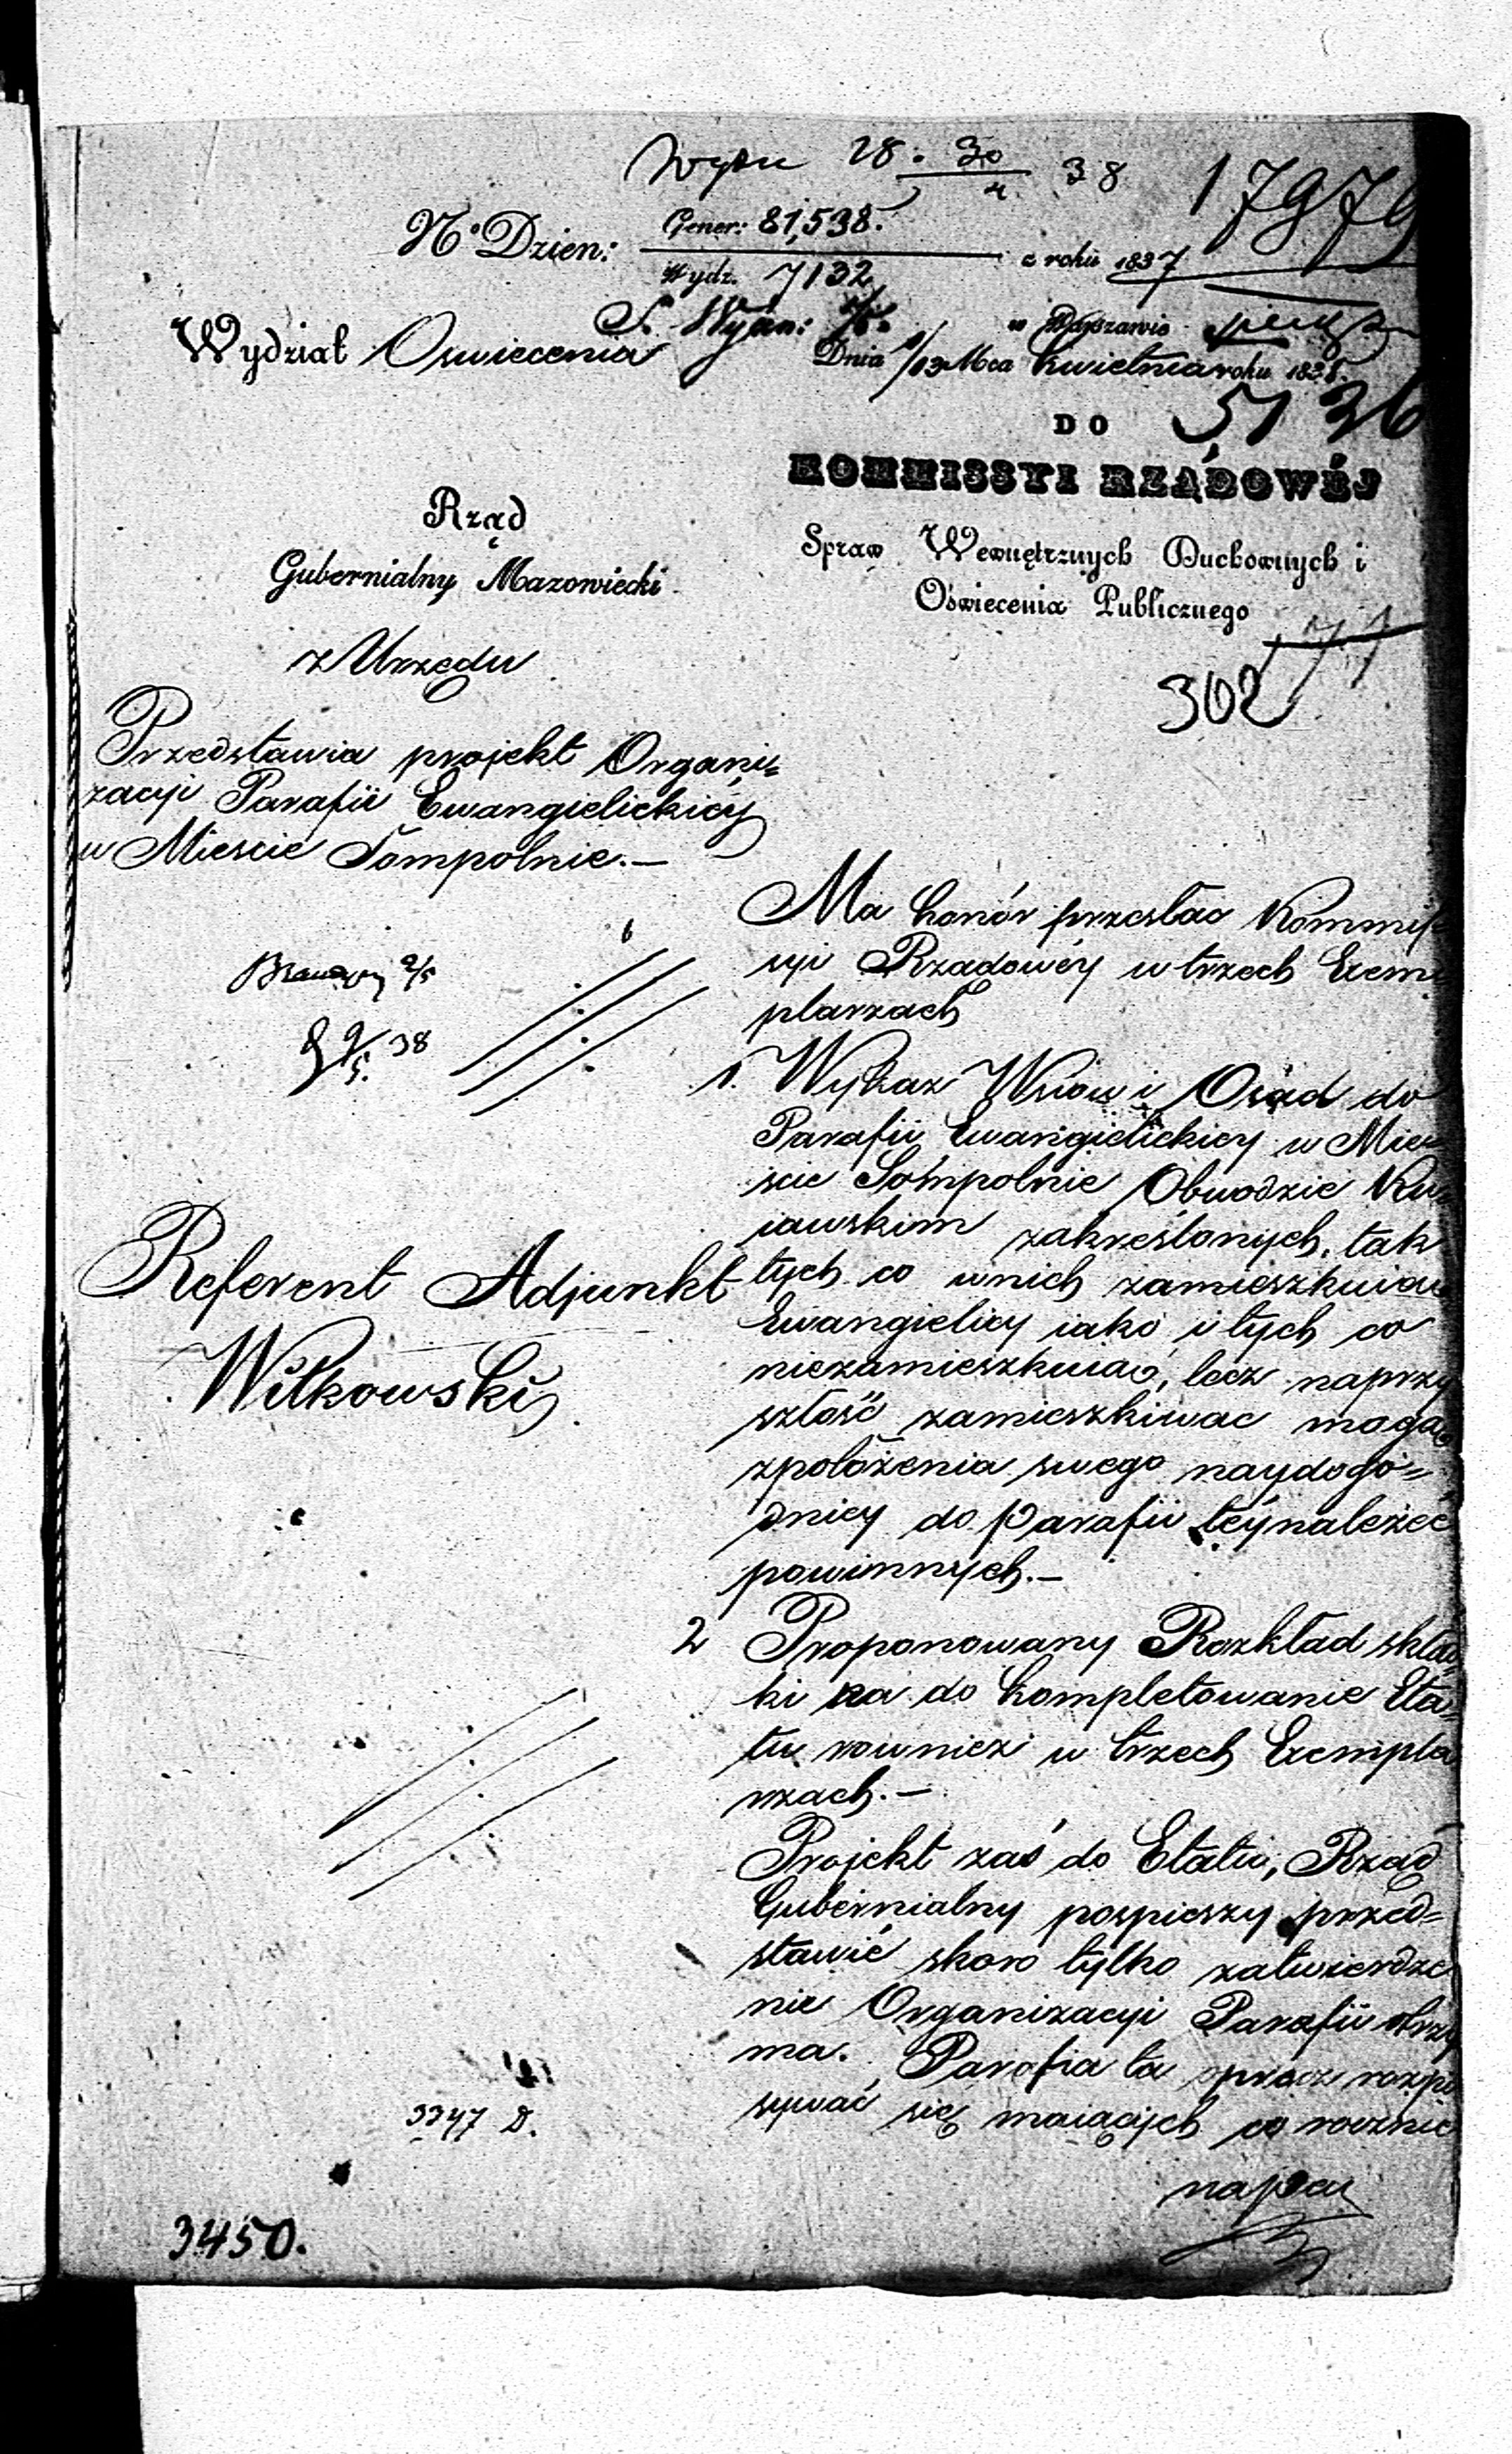 28. 30/4 38
17979
N° Dzien: Gener: 81,538.
Wydz. 7132
z roku 1837
S. Wyzn:
w Warszawie
Wydział Oswiecenia
Dnia 1/13 Mca Kwietnia roku 1838.
5136
DO
KOMMISSYI RZĄDOWÉJ
Spraw Wewnętrznych Duchownych i
Oświecenia Publicznego
302
Rząd
Gubernialny Mazowiecki
z Urzędu
Przedstawia projekt Organi-
zacyi Parafii Ewangielickiéy
w Miescie Sompolnie.—
9/5 38
Referent Adjunkt
Wilkowski
Ma honór przesłac Kommis
syi Rządowéy w trzech Exem
plarzach
1. Wykaz Wsiow i Osad do
Parafii Ewangielickiey w Mie-
scie Sompolnie Obwodzie Ku
iawskim zakreślonych, tak
tych co w nich zamieszkuią
Ewangielicy iako i tych co
niezamieszkuią, lecz naprzy
szłość zamieszkiwac mogą
z położenia swego naydogo-
dniey do Parafii téy należéć
powinnych.—
2 Proponowany Rozkład skład
ki na do kompletowanie Eta-
tu rownież w trzech Exempla
rzach.—
Projekt zaś do Etatu, Rząd
Gubernialny pospieszy przed-
stawić skoro tylko zatwierdze
nie Organizacyi Parafii otrzy
ma. Parafia ta oprócz rozpi
sywać się maiących co rocznie
3347 D.
3450.